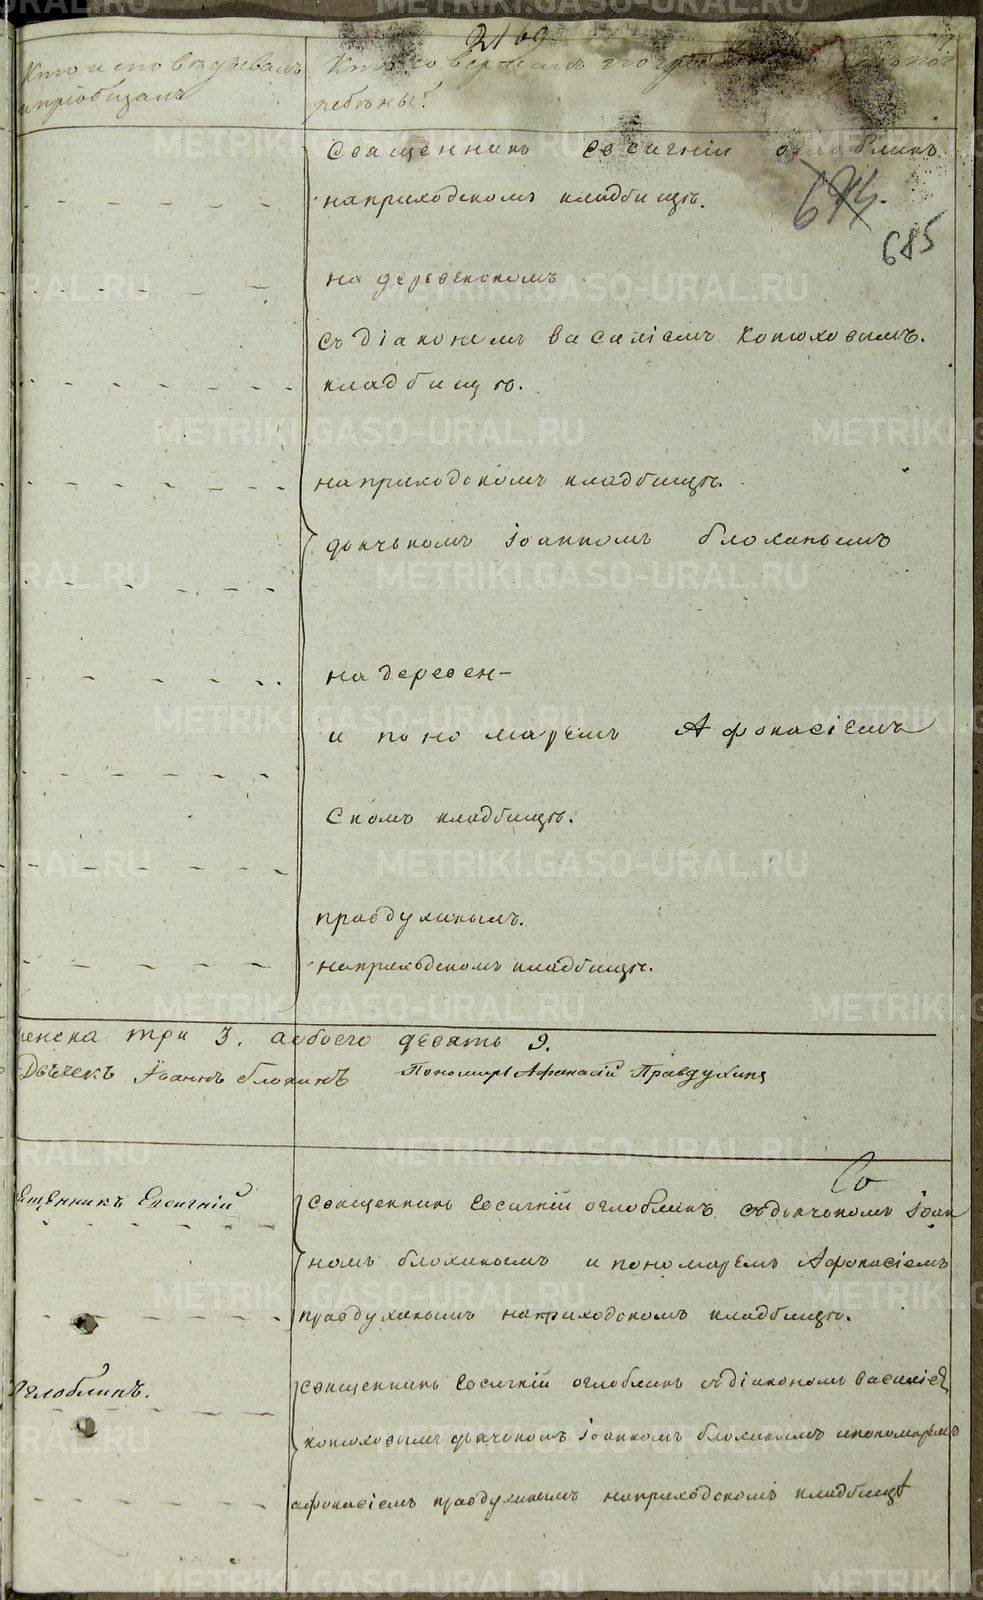 2169
Кто исповѣдывалъ
и пріобщалъ
Кто совершалъ погребеніе
ребѣны?
Священникъ Евсигній Оглоблинъ
на приходскомъ кладбищѣ.
685
на деревенскомъ
съ діакономъ Василіемъ Конюховымъ.
кладбищѣ.
на приходскомъ кладбищѣ.
дьячькомъ Іоанномъ Блохинымъ
на деревен-
и пономаремъ Афонасіемъ
скомъ кладбищѣ.
Правдухинымъ.
на приходскомъ кладбищѣ.
женска три 3. а обоего девять 9.
Дьячекъ Іоаннъ Блохинъ Пономарь Афанасій Правдухинъ
Со
щенникъ Евсигній
священникъ Евсигній Оглоблинъ съ дьячькомъ Іоан
номъ Блохинымъ и пономаремъ Афонасіемъ
Правдухинымъ на приходскомъ кладбищѣ.
Оглоблинъ.
священникъ Евсигній Оглоблинъ съ діакономъ Василіемъ
Конюховымъ дьячкомъ Іоанномъ Блохинымъ и пономаремъ
Афонасіемъ Правдухинымъ на приходскомъ кладбищѣ
METRIKI.GASO-URAL.RU